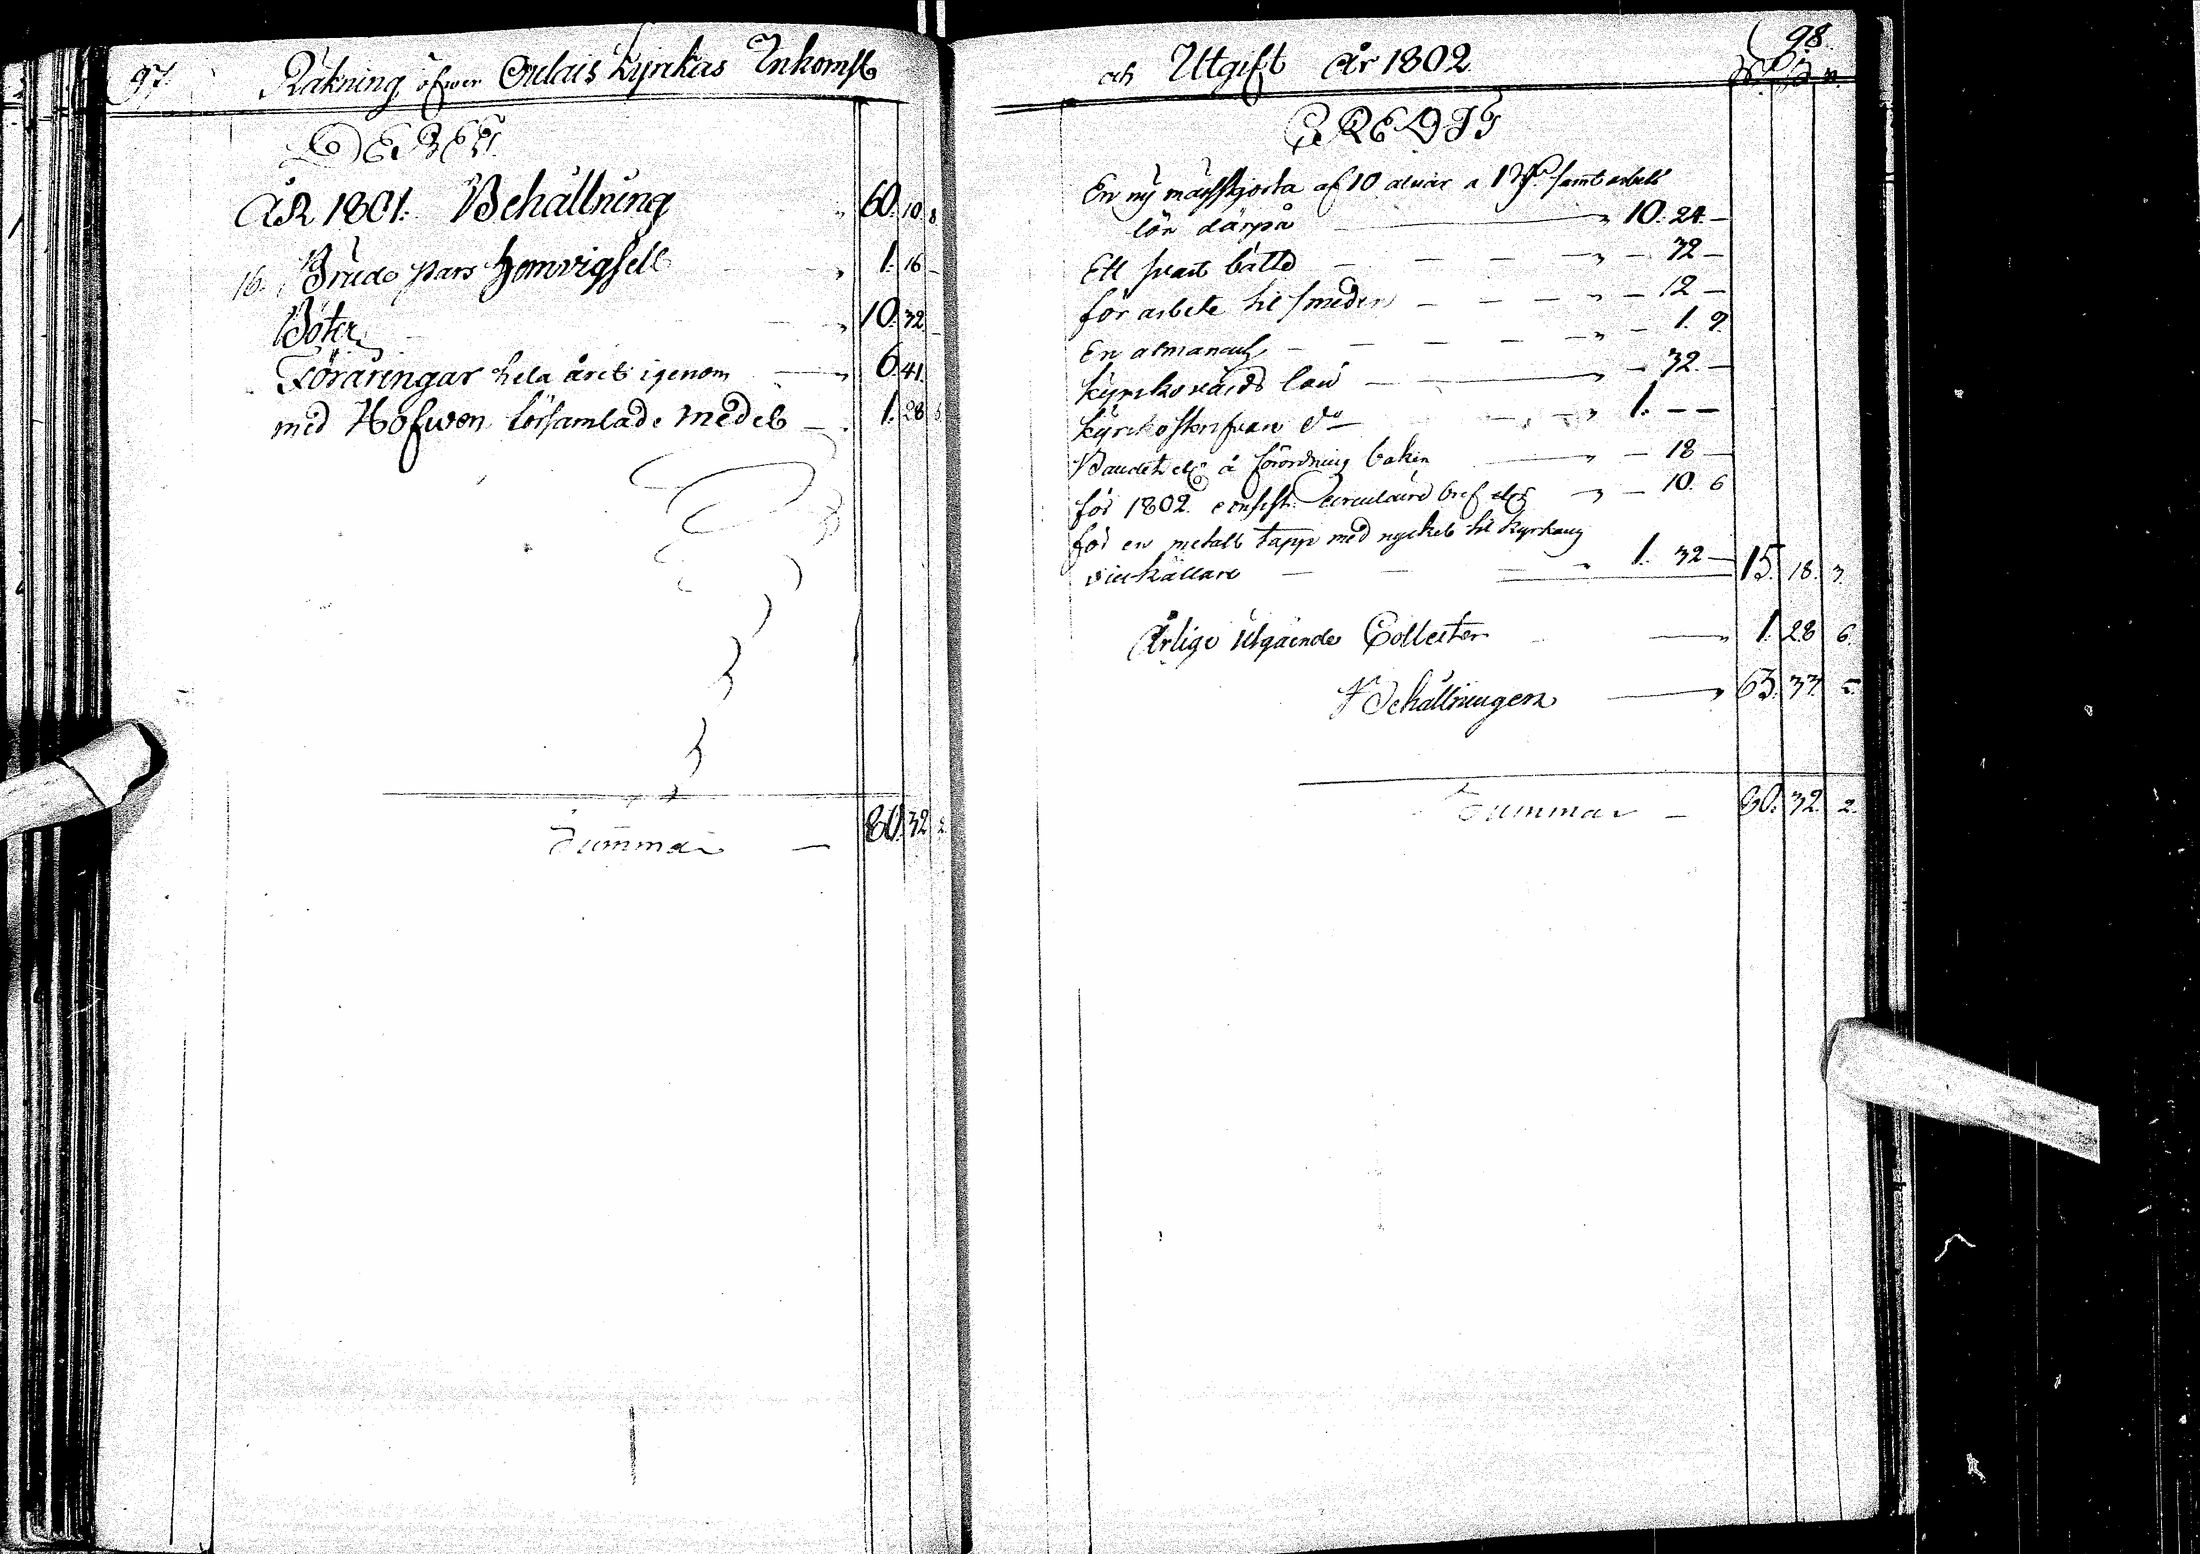 97.
Räkning öfwer Ordais Kyrkas Inkomst
DEBET.
ÅR 1801. Behållning " 60. 10. 8
16. Brude pars hemvigsell " 1. 16 –
Böter " 10. 32 –
Föräringar hela året igenom " 6. 41.
med Hofwen församlade medel – " 1. 28 6
Summa – 80. 32 2
98.
och Utgift År 1802
CREDIT
En ny mässkjorta af 10 alnar a samt arbets
lön därpå " 10. 24. –
Ett svart bälte " – 32 –
för arbete til smeden " – 12 –
En almanach " – 1. 9.
Kyrkovärds lön " – 32. –
" 1. – –
å förordning " – 18 –
för 1802. Circulaire bref " – 10. 6
för en metall tapp med nyckel til Kyrkans
vinkällare " 1. 32 – 15. 18. 3.
Årlige Utgående Collecter " 1. 28 6.
Behållningen " 63. 33 5.
Summa – 80. 32. 2.